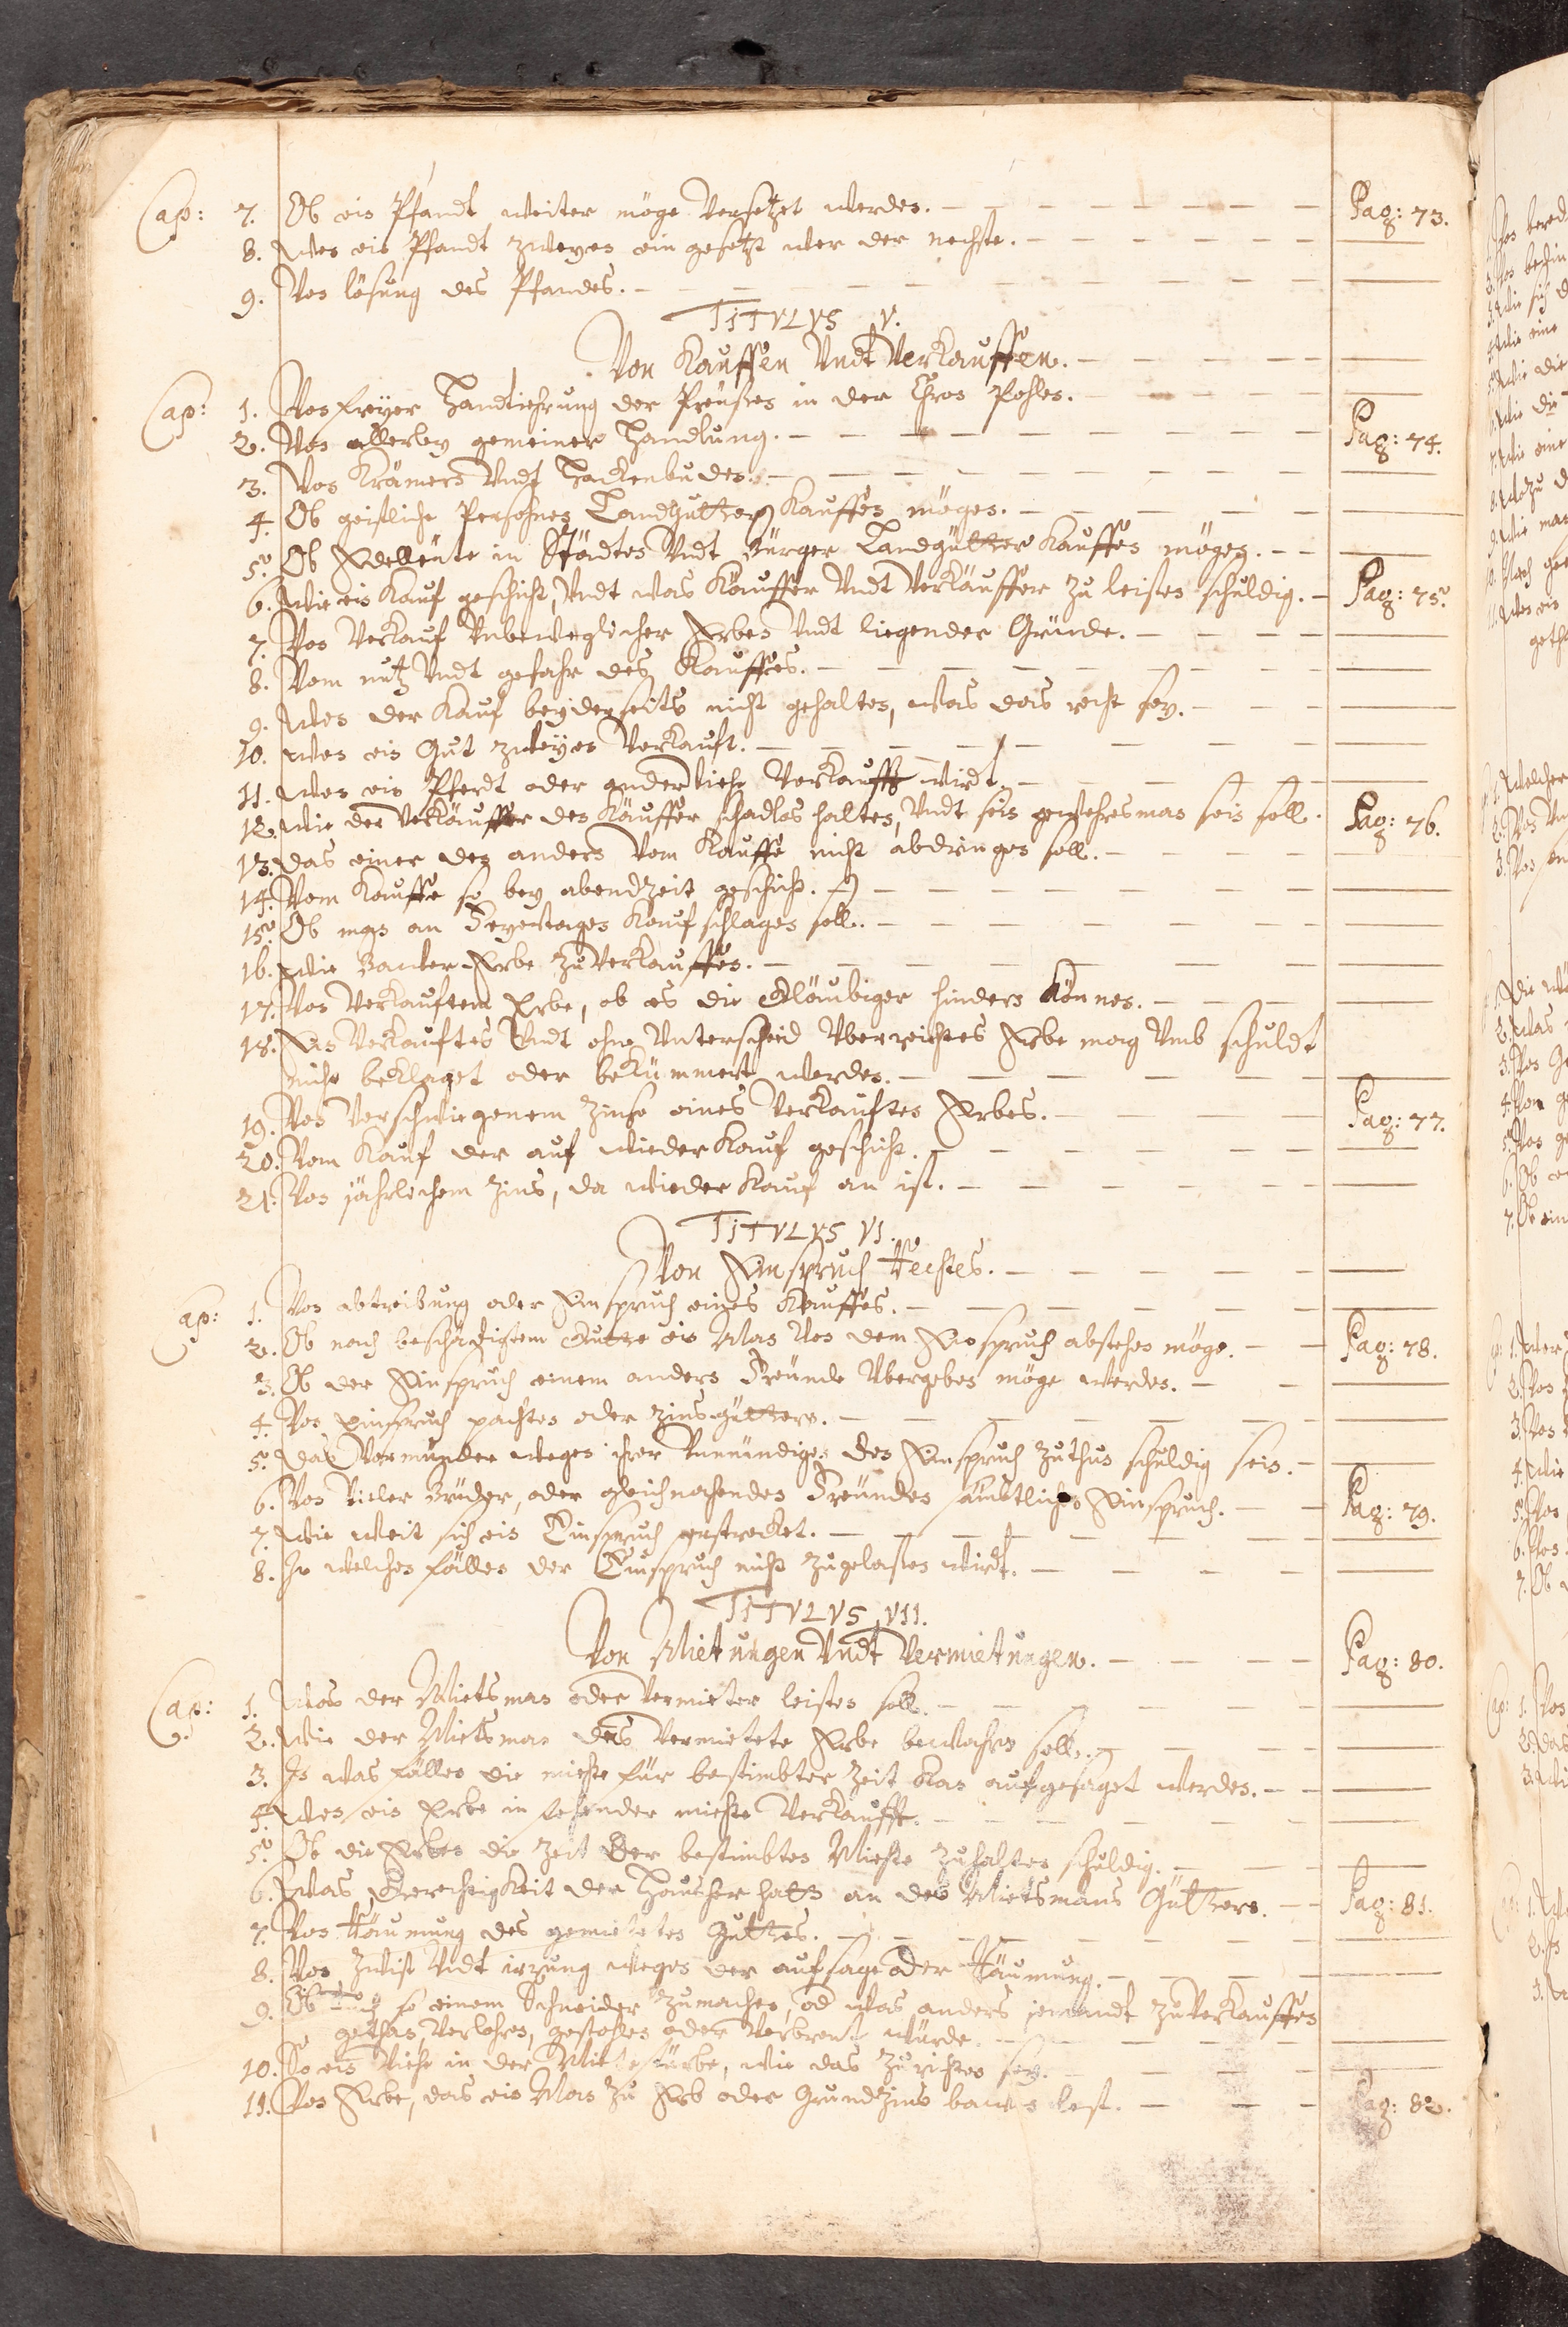 Cap: 7. Ob ein Pfandt weiter möge versetzet werden. Pag: 73.
8. Wen ein Pfandt zweyen ein gesetzt wer der nechste.
9. Von lösung des Pfandes.
TITVLVS V.
Von Kauffen Vndt Verkauffen.
Cap: 1. Von freyer Handtiehrung der Preußen in der Chron Pohlen.
2. Von allerley gemeiner Handlung. Pag: 74.
3. Von Krämern Vndt Hackenbuden.
4. Ob geistliche Persohnen Landgutter Kauffen mögen.
5. Ob Edelleute in Städten Vndt Bürger Landgütter Kauffen mögen.
6. Wie ein Kauf geschicht, Vndt was Käuffer Vndt Verkäuffer zu leisten schuldig. Pag: 75.
7. Von Verkauf Vnbeweglicher Erben Vndt liegender Gründe.
8. Vom nutz Vndt gefahr des Kauffes.
9. Wen der Kauf beyderseits nicht gehalten, was das recht sey.
10. Wen ein Gut zweyen Verkauft.
11. Wen ein Pferdt oder ander Viehe Verkaufft wirdt.
12. Wie der Verkäuffer den Käuffer schadlos halten, Vndt sein gewehresman sein soll. Pag: 76.
13. Das einer den andern Vom Kauffe nicht abdringen soll.
14. Vom Kauffe so bey abendzeit geschicht.
15. Ob man an Feyertagen Kaufschlagen soll.
16. Wie Bauer Erbe zu Verkauffen.
17. Von Verkauftem Erbe, ob es die Gläubiger hindern Können.
18. Ein Verkauftes Vndt ohne Vnterscheid Vberreichtes Erbe mag Vmb schuldt
nicht beklaget oder bekümmert werden.
19. Von Verschwiegenem Zinse eines Verkauften Erbes. Pag: 77.
20. Vom Kauf der auf wieder Kauf geschicht.
21. Von jährlichem Zins, da wieder Kauf an ist.
TITVLVS VI.
Von Einspruch Rechtes.
Cap: 1. Von abtreibung oder Einspruch eines Kauffes.
2. Ob nach beschädigtem Gutte ein Man Von dem Einspruch abstehen möge. Pag: 78.
3. Ob der Einspruch einem andern Freunde Vbergeben möge werden.
4. Von einspruch pachten oder zinsgüttern.
5. Das Vormunder wegen ihrer Vnmündigen den Einspruch zuthun schuldig sein.
6. Von Vieler Brüder, oder gleichnahenden Freunden sämbtliches Einspruch. Pag: 79.
7. Wie weit sich ein Einspruch erstrecket.
8. In welchen fällen der Einspruch nicht zugelassen wirdt.
TITVLVS VII.
Von Mietungen Vndt Vermietungen. Pag: 80.
Cap: 1. Was der Mietsman oder Vermieter leisten soll.
2. Wie der Mietsman das Vermietete Erbe bewahren soll.
3. In was fällen die miethe für bestimbter Zeit Kan aufgesaget werden.
4. Wen ein Erbe in stehender miethe Verkaufft.
5. Ob die Erben die Zeit der bestimbten Miethe zuhalten schuldig.
6. Was Gerechtigkeit der Haußher hatt an des Mietsmans Güttern. Pag: 81.
7. Von Räumung des gemieteten Guttes.
8. Von Zwist Vndt irrung wegen der aufsage oder Räumung.
9. Ob so einem Schneider zumachen, od was anders jemandt zu Verkauffen
gethan, Verlohren, gestohlen oder Verbrent würde.
10. So ein Viehe in der Miete stürbe, wie das zurichten sey.
11. Von Erbe, das ein Man zu Erb oder Grundzins bauen lest. Pag: 82.